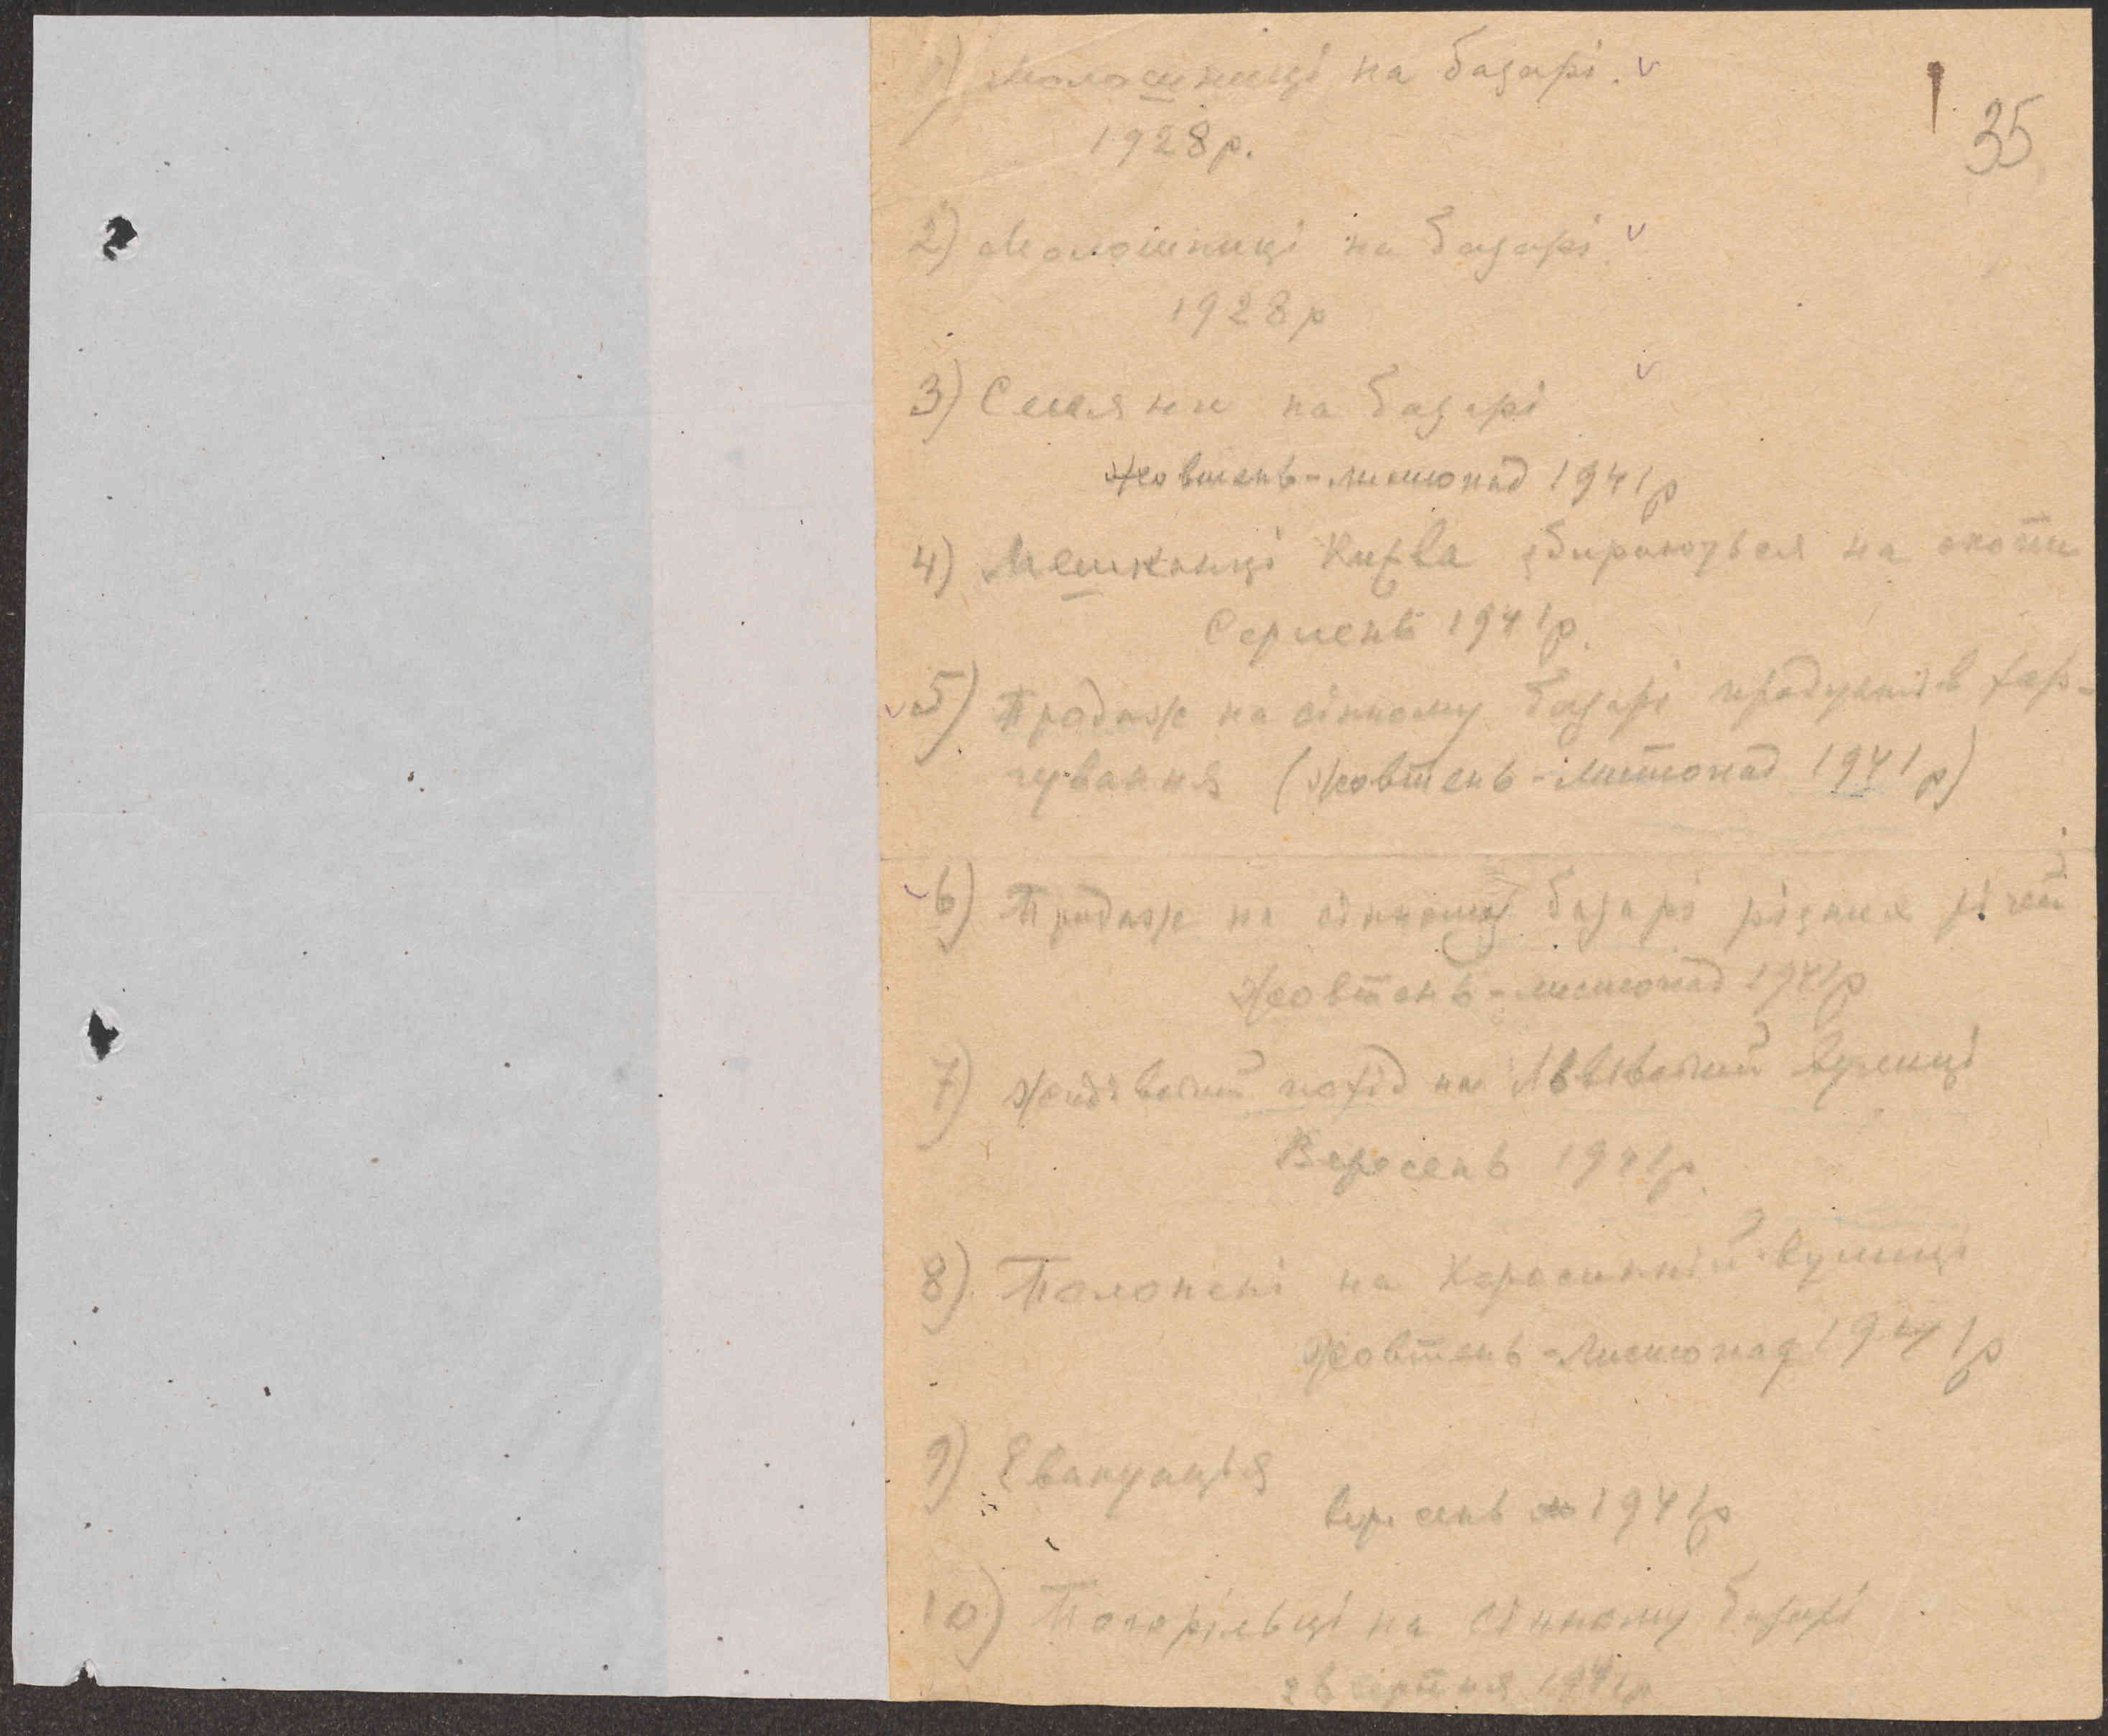 35
1) Молошниці на базарі. v
1928 р.
2) Молошниці на базарі v
1928 р
3) Селяни на базарі v
Жовтень-листопад 1941 р
4) Мешканці Київа збираються на окопи
Серпень 1941 р.
v 5) Продаж на сінному базарі продуктів хар-
чування (жовтень-листопад 1941 р)
v 6) Продаж на сінному базарі різних річей
Жовтень-листопад 1941 р
7) Жидівський похід на Львівській вулиці
Вересень 1941 р.
8) Полонені на Керосинній вулиці
Жовтень-Листопад 1941 р
9) Евакуація
вересень 1941 р
10) Погорільці на Сінному базарі
серпня 1941 р